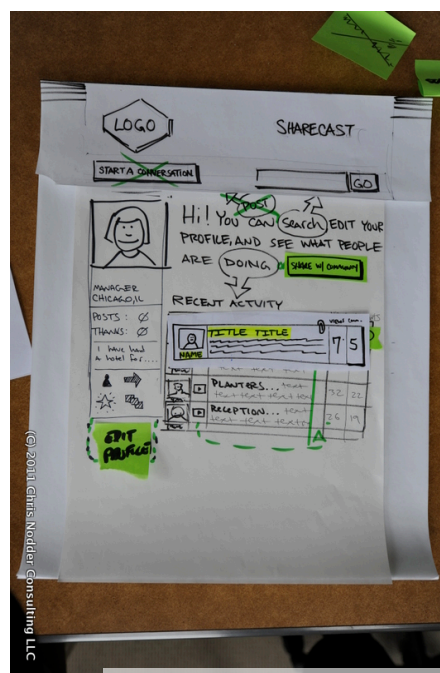 LOGO
SHARECAST
START A CONVERSATION
GO
POST
Hi! YOU CAN Search EDIT YOUR
PROFILE, AND SEE WHAT PEOPLE
ARE DOING
SHARE W/ COMMUNITY
RECENT ACTIVITY
MANAGER
CHICAGO, IL
POSTS: Ø
THANKS: Ø
I have had
a hotel for....
TITLE TITLE
NAME
7 5
PLANTERS... text
text text text text
32 22
RECEPTION... text
text text text text
26 19
EDIT
PROFILE
(C) 2011 Chris Nodder Consulting LLC